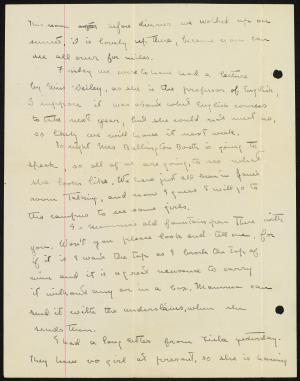 This noon before dinner we walked up on
sunset, it is lovely up there, because you can
see all over for miles.
Friday we were to have had a lecture
by Miss, as she is the professor of English,
I suppose it was about what English courses
to take next year, but she could not meet us,
so likely we will have it next week.
To night Mrs Ballington Booth is going to
speak, so all of us are going, to see what
she looks like. We have just all been in
room talking, and now I guess I will go to
the campus to see some girls.
Is mamma's old fountain pen there with
you. Won't you please look and tell me, for
if it is I want the top as I broke the top of
mine and it is a great nuisance to carry
it without any or in a box. Mamma can
send it with the underslains, when she
sends them.
I had a long letter from yesterday.
They have no girl at present, so she is having